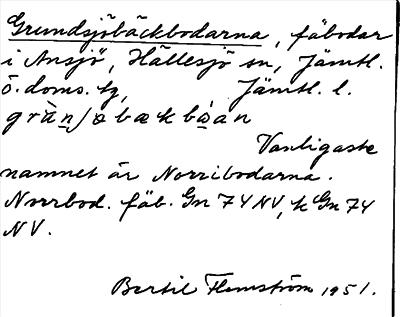 Grundsjöbäckbodarna, fäbodar
i Ansjö, Hällesjö sn, Jämtl.
ö. doms. tg, Jämtl. l.
Vanligaste
namnet är Norribodarna.
Norrbod. fäb. Gn 74 NV, k Gn 74
NV.
Bertil Flemström 1951.